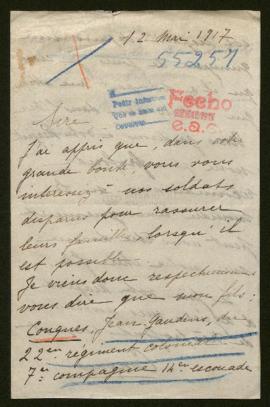 12 Mai 1917
55257
Fecho
e.a.c
Sire
J'ai appris que, dans votre
grande bonté vous vous
intéressez à nos soldats
disparus pour rassurer
leurs familles lorsqu'il
est possible.
Je viens donc respectueusement
vous dire que mon fils:
Congues, Jean, Gaudens, du
22em régiment colonial
7e compagnie 14em escouade